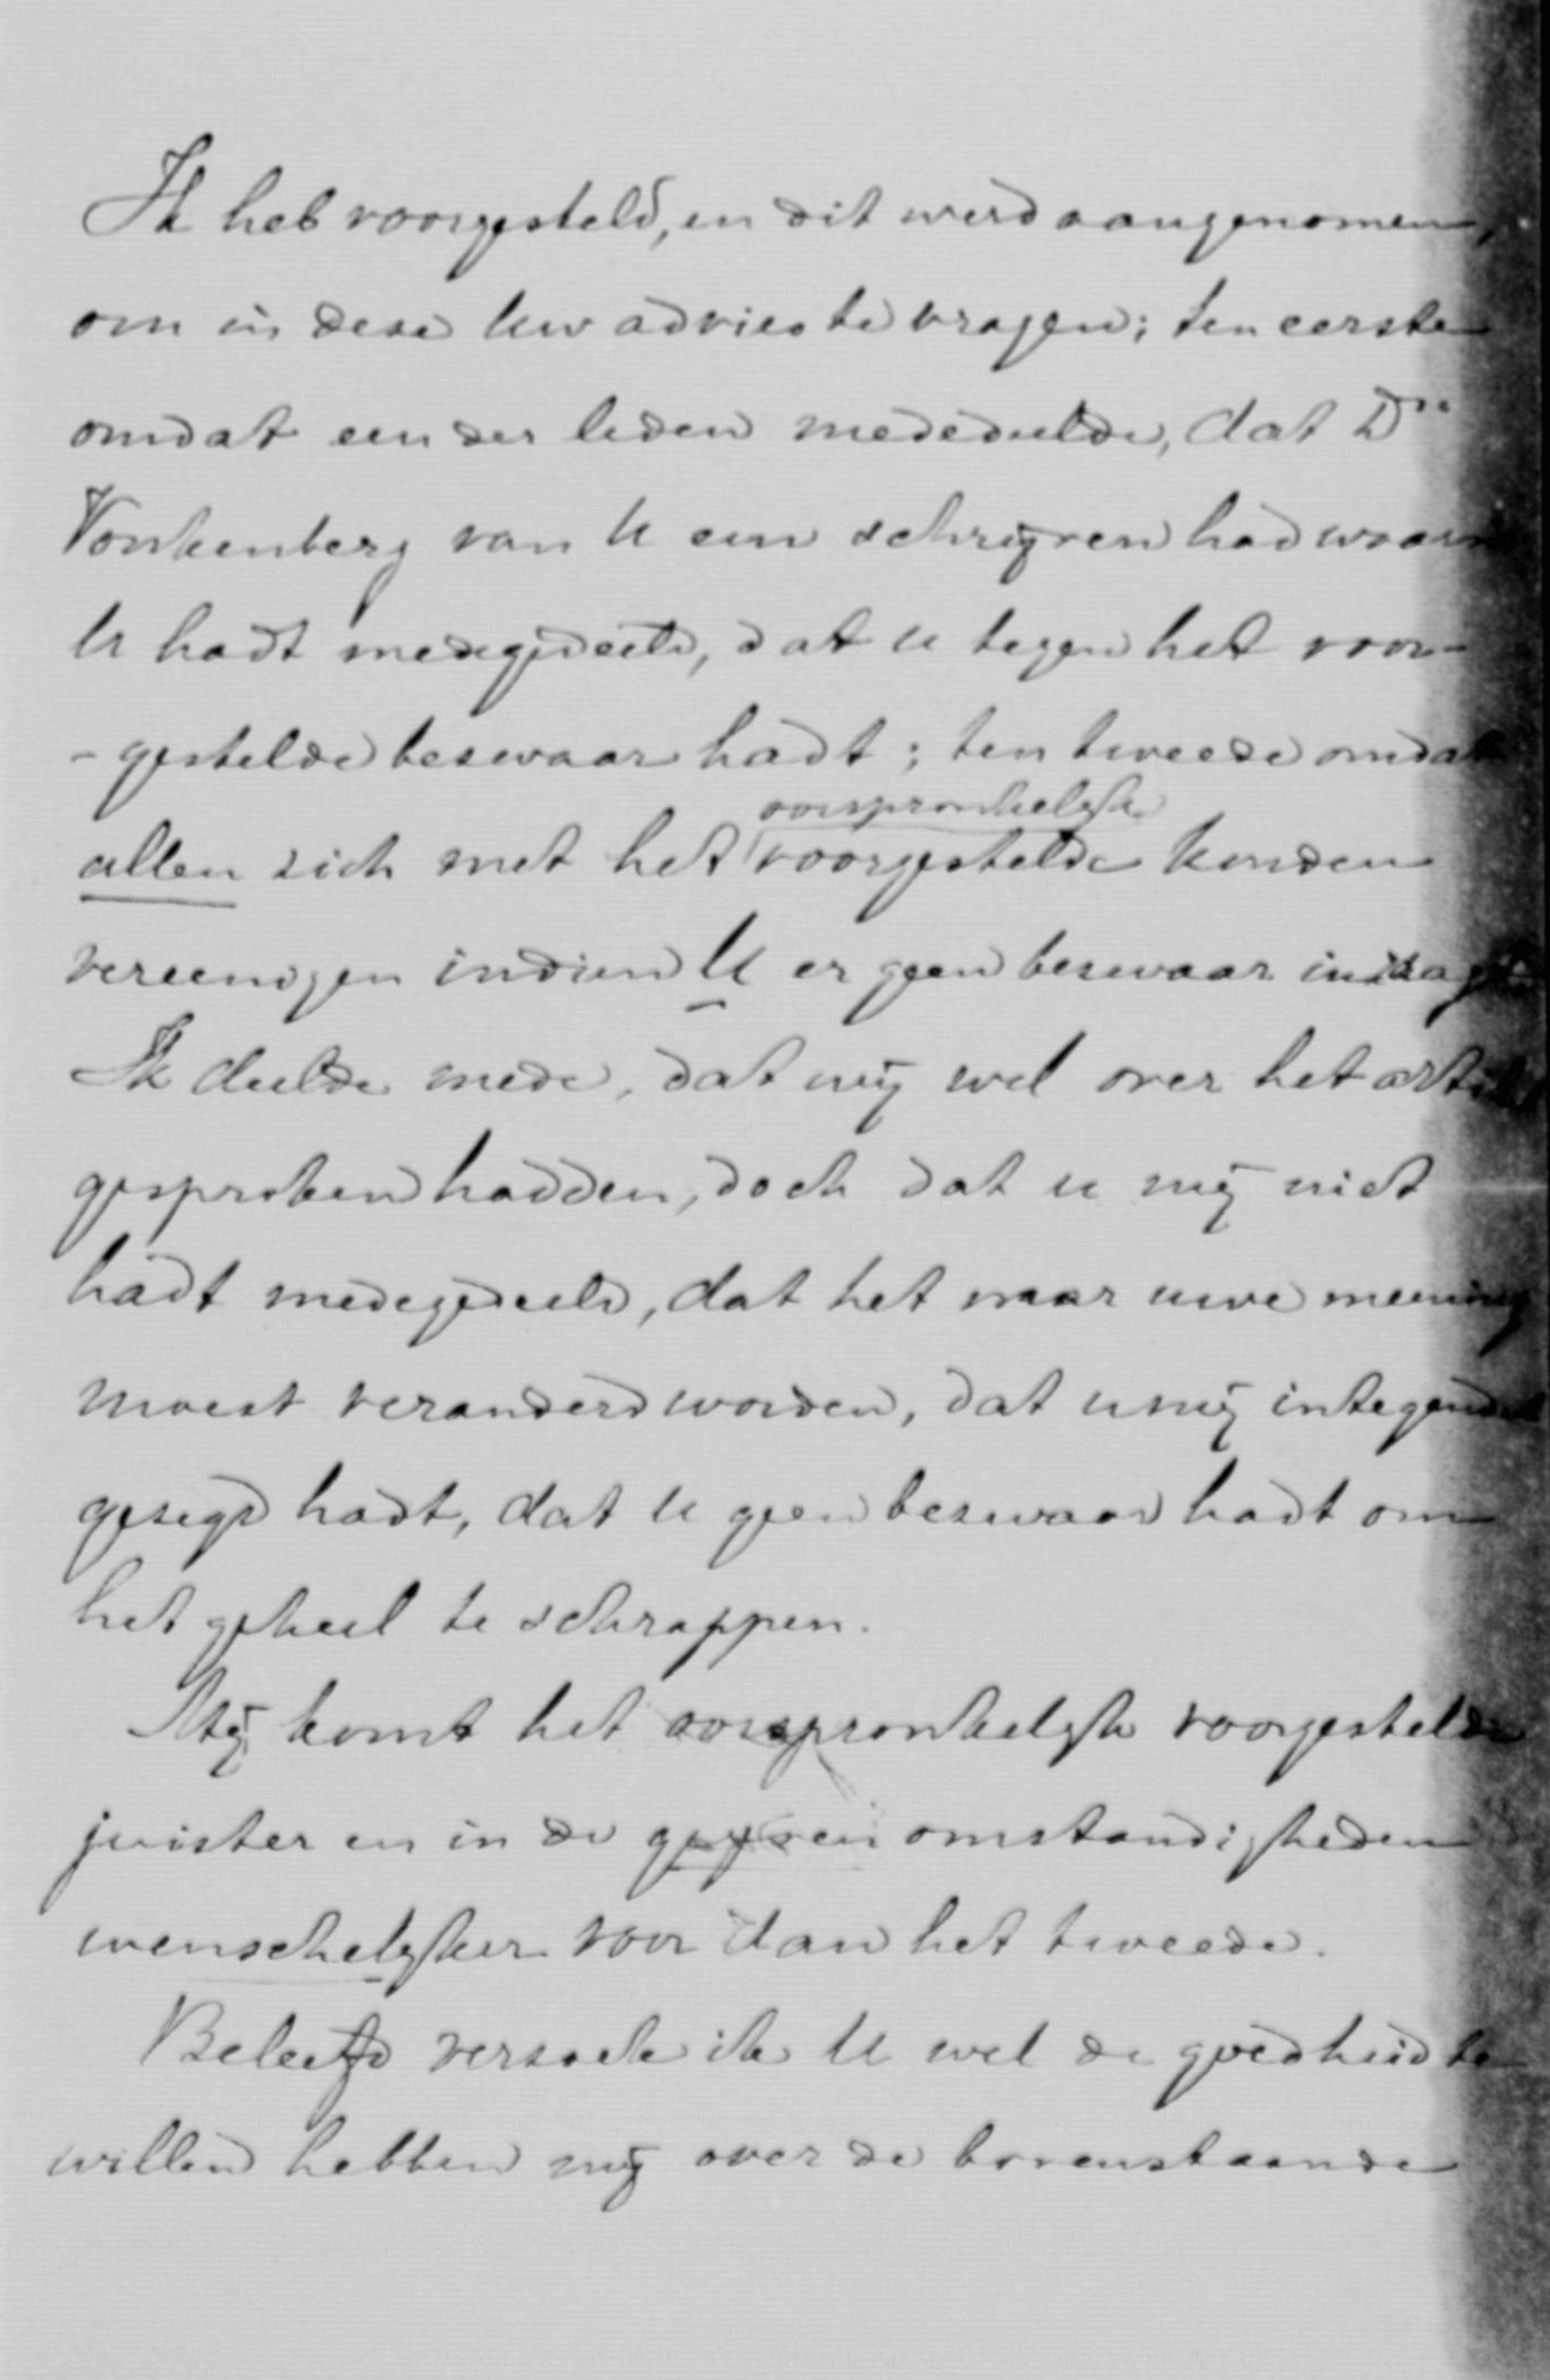 Ik heb voorgesteld, en dit werd aangenomen,
om in deze Uw advies te vragen; ten eerste
omdat een der leden mededeelde, dat Ds
Vonkenberg van U een schrijven had waarin
U hadt medegedeeld, dat U tegen het voor-
-gestelde bezwaar hadt; ten tweede omdat
oorspronkelijk
allen zich met het voorgestelde konden
vereenigen indien U er geen bezwaar in zag
Ik deelde mede, dat wij wel over het artikel
gesproken hadden, doch dat u mij niet
hadt medegedeeld, dat het naar uwe meening
moest veranderd worden, dat u mij integendeel
gezegd hadt, dat U geen bezwaar hadt om
het geheel te schrappen.
Mij komt het oorspronkelijk voorgestelde
juister en in de gegeven omstandigheden
wenschelijker voor dan het tweede.
Beleefd verzoek ik U wel de goedheid te
willen hebben mij over de bovenstaande